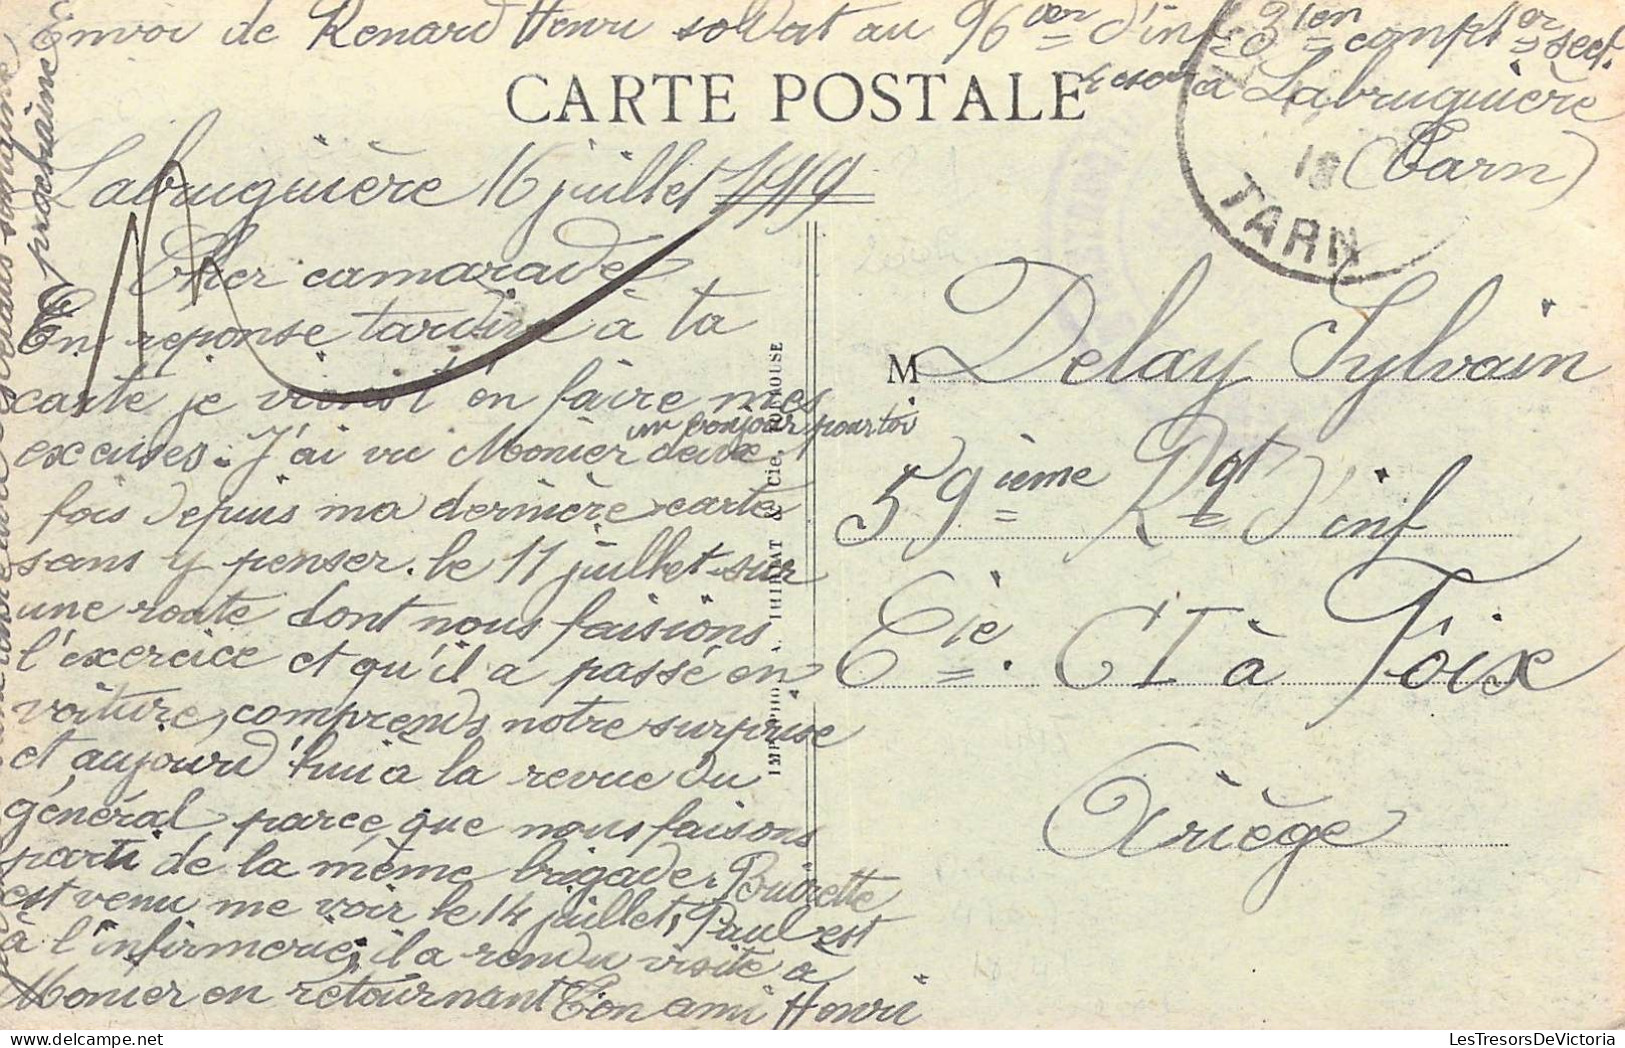 Envoi de Renard Henri soldat au 96 d'inf 3ien comp 1er sect.
à Labruguière
(Tarn)
CARTE POSTALE
TARN
19
Labruguière 16 juillet 1919
Cher camarade
En réponse tardive à ta
carte je viens t'en faire mes
excuses. J'ai vu Monier deux
un bonjour pour toi
fois depuis ma dernière carte
sans y penser. le 11 juillet sur
une route dont nous faisions
l'exercice et qu'il a passé en
voiture, comprends notre surprise
et aujourd'hui à la revue du
général parce que nous faisons
parti de la même brigade. Bouirette
est venu me voir le 14 juillet, Paul est
à l'infirmerie, il a rendu visite à
Monier en retournant Ton ami Henri
semaine
prochaine
M Delay Sylvain
59ième Rgt d'inf
Cie. CI à Foix
Ariège
TOULOUSE
LesTresorsDeVictoria